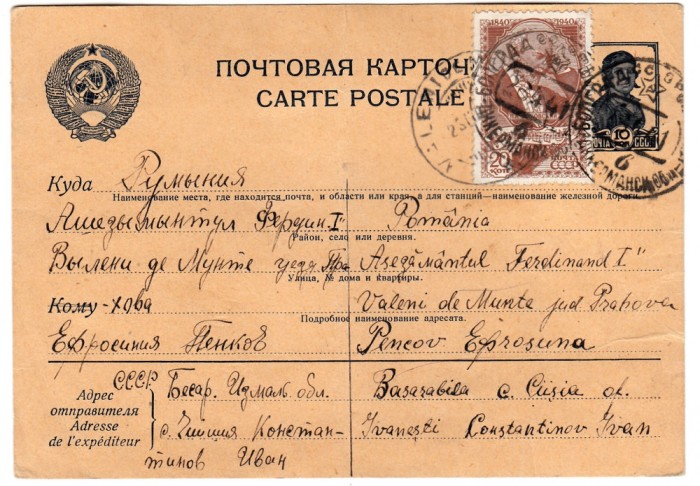 ПОЧТОВАЯ КАРТОЧ
CARTE POSTALE
1840 1940
20 КОП
ПОЧТА СССР
10
ПОЧТА СССР
Куда Румыния
Наименование места, где находится почта, и области или края, а для станций—наименование железной дороги.
Ашедымынтул Фердин. I România
Район, село или деревня.
Вылени де Мунте уезд Пра Aşedǎmântul Ferdinand I"
Улица, № дома и квартиры.
Кому -хова Valeni de Munte jud Prahova
Подробное наименование адресата.
Ефросиния Пенков Pencov Efrosuna
СССР Бесар. Измаль. обл. Basarabila c. Cişia of.
Адрес
отправителя
Adresse
de l'expéditeur
с. Чишия Констан- Ivaneşti Constantinov Ivan
тинов Иван